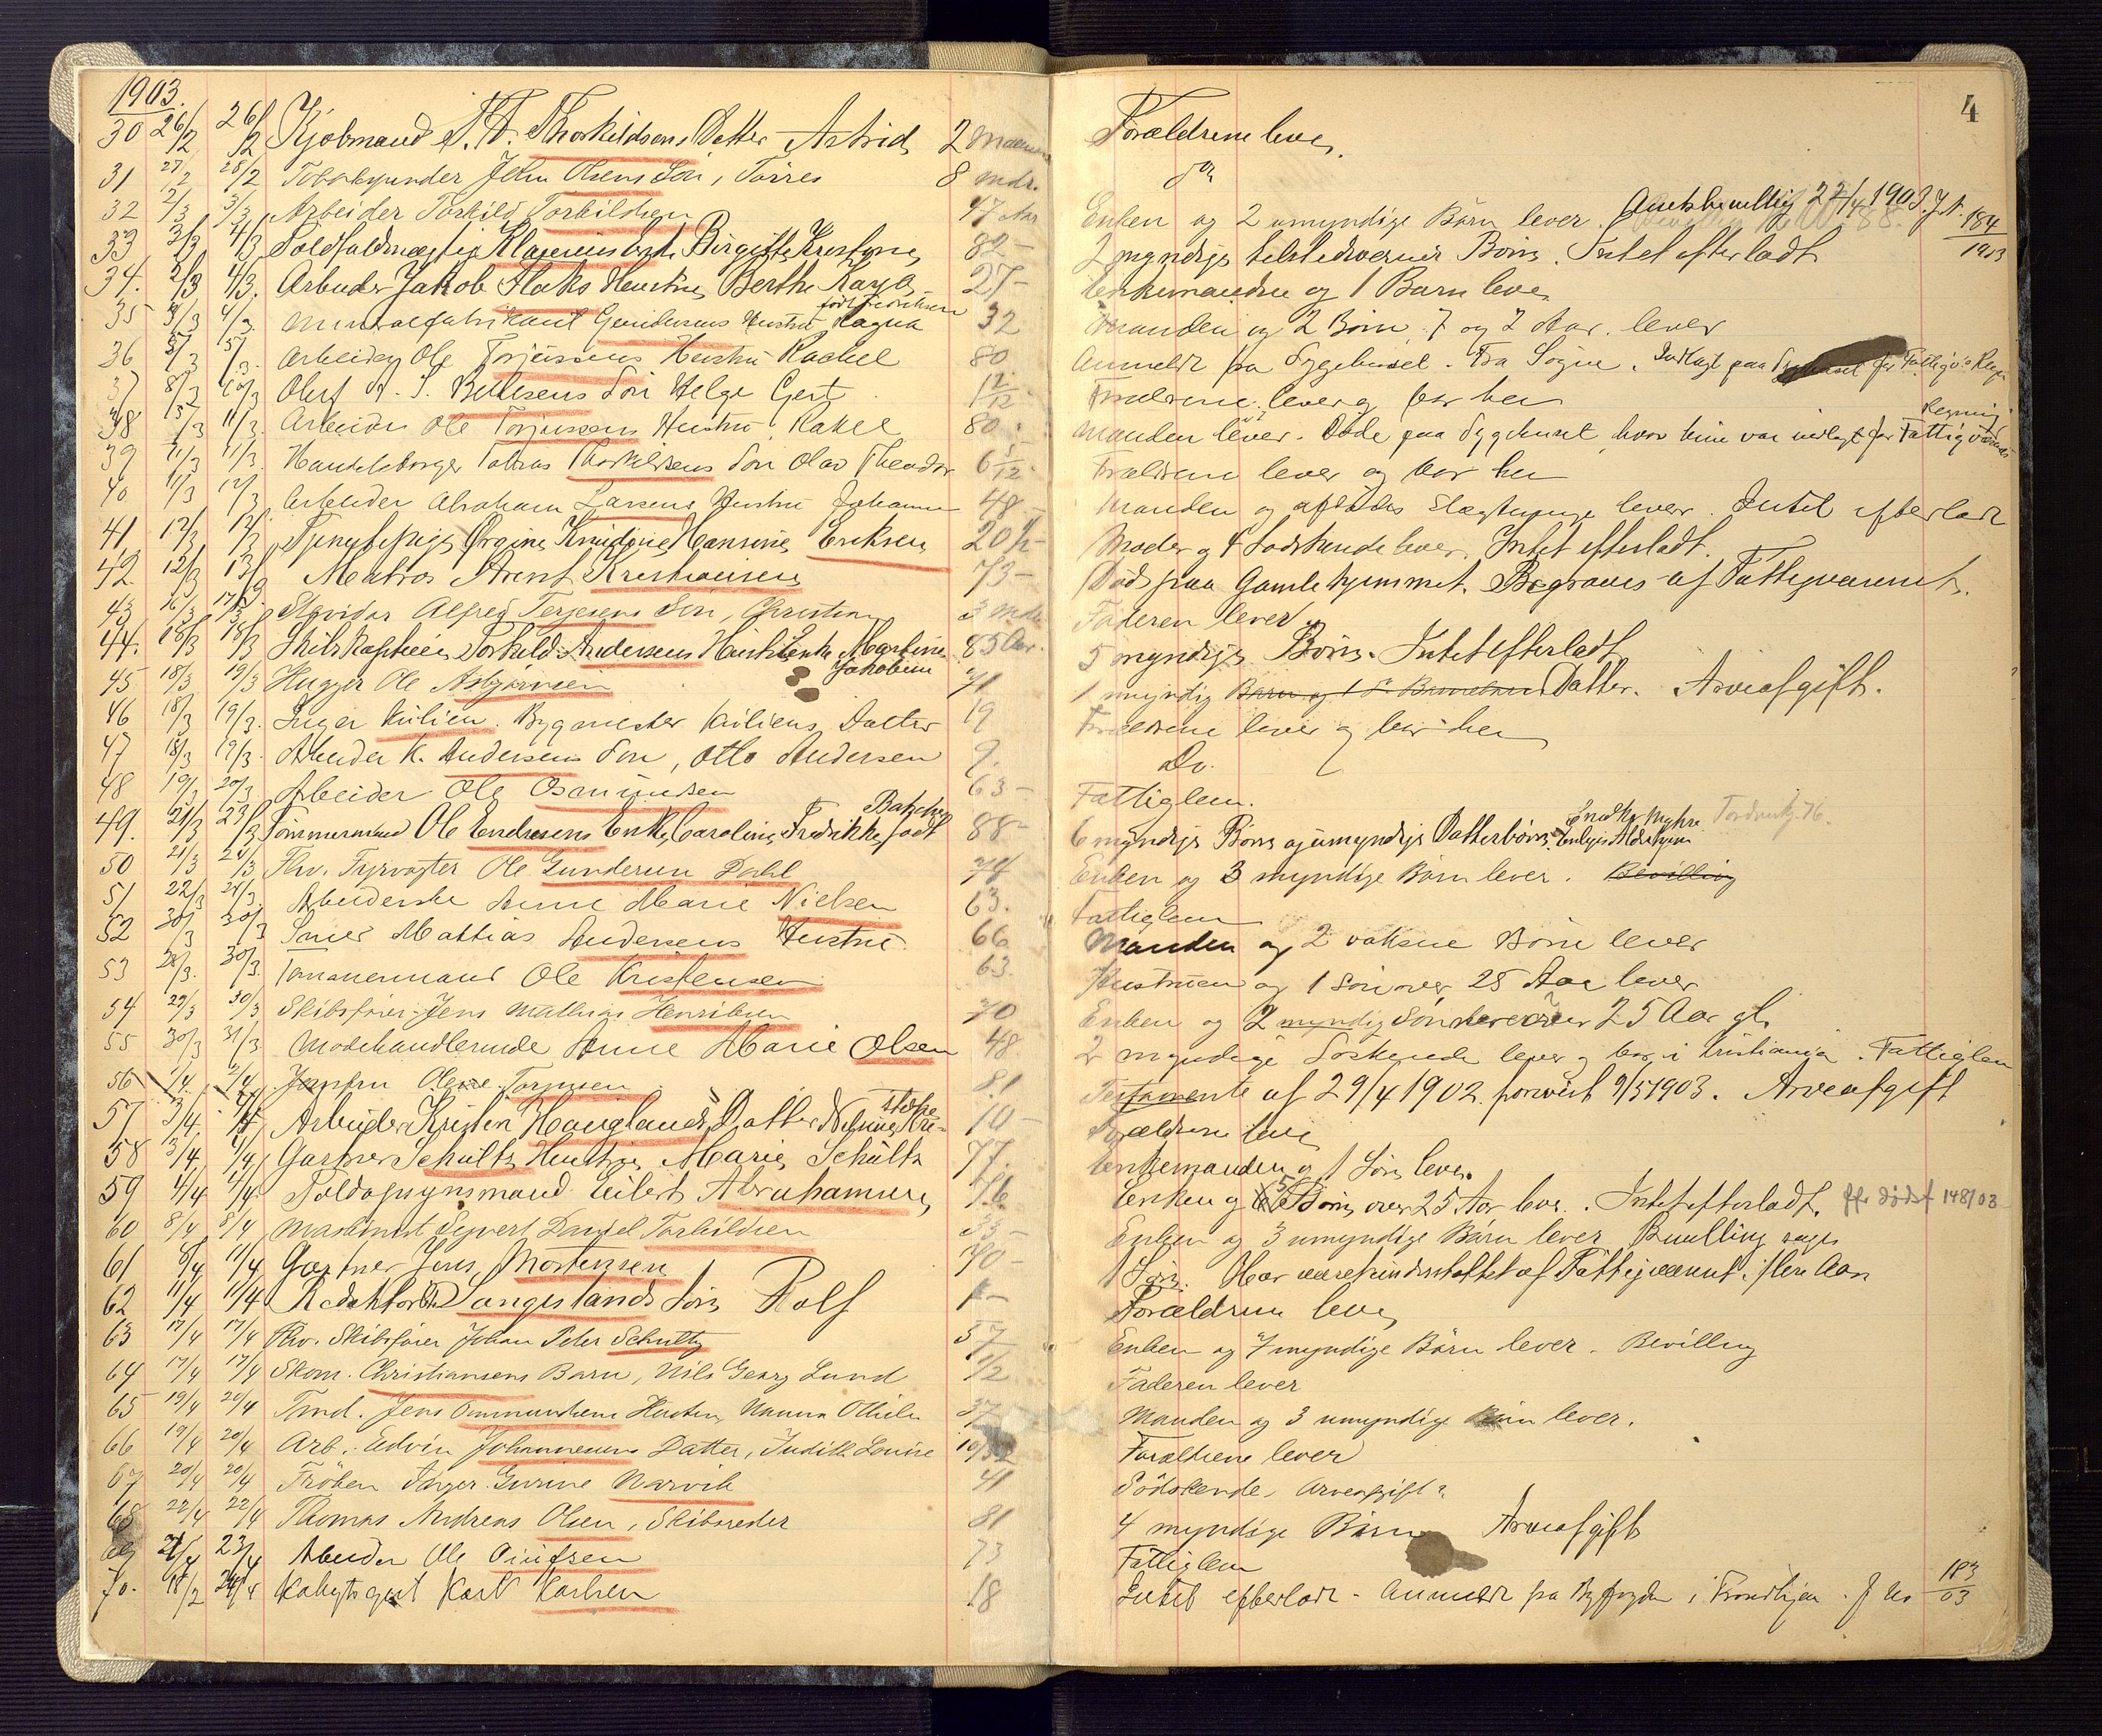 1903.
4
30 26/2 26/2 Kjøbmand Thorkildsens Datter Astrid 2 Forældrene lever.
31 27/2 28/2 John Olsens Søn, Tørres 8 mdr. Do
32 2/3 3/3 Arbeider Torkild Torkildsen 47 Aar Enken og 2 umyndige Børn lever. 22/4 1903. J.N. 184/1903
33 2/3 4/3 Toldfuldmægtig Enke Birgitte 82 – 2 myndige tilstedeværende Børn. Intet efterladt
34. 2/3 4/3. Arbeider Jakob Flaks Hustru Berthe Karya 27 – Enkemanden og 1 Barn lever
35 3/3 4/3. Mineralfabrikant Gundersens Hustru Ragna født Fredriksen 32 Manden og 2 Børn 7 og 2 Aar. lever
36 5/3 5/3. Arbeider Ole Torjussens Hustru Rachel 80 Anmeldt fra Sygehuset. Fra Sogne. Indlagt paa for Fattigv.s Regn
37 8/3 10/3 Oluf Søn Helge Gert 12/12 Forældrene lever og bor her
38 5/3 11/3 Arbeider Ole Torjussens Hustru, Rakel 80. Manden lever. Døde paa Sygehuset hvor hun var indlagt for Fattigvæsenets Regning
39 11/3 11/3. Handelsborger Tobias Thorkildsens Søn Olav Theodor 6 5/12. Forældrene lever og bor her
40 11/3 12/3 Arbeider Abraham Larsens Hustru Johanne 48 – Manden og afdødes Slægtninge lever. Intet efterladt
41 12/3 12/3 Tjenestepige Ørgine Hansine Eriksen 20 ½ – Moder og 4 Sødskende lever. Intet efterladt.
42 12/3 13/3 Matros Arent Kristiansen 73 – Død paa Gamlehjemmet. Begraves af Fattigvæsenet.
43 16/3 17/3 Alfred Terjesens Søn, Christian 3 mdr Faderen lever
44. 18/3 18/3 Skibskaptein Torkild Andersens Enke Martine Jakobine 85 Aar. 5 myndige Børn. Intet efterladt
45 18/3 19/3 Hugger Ole Asbjørnsen 71 1 myndig Datter. Arveafgift.
46 18/3 19/3. Inger Kiilien. Bygmester Kiiliens Datter 19 Forældrene lever og bor her
47 18/3 19/3. Arbeider K. Andersens Søn, Otto Andersen 9. Do.
48 19/3 20/3 Arbeider Ole Osmundsen 63 – Fattiglem.
49. 21/3 23/3 Tømmermand Ole Endresens Enke Caroline Fredrikke født 88 – 6 myndige Børn og umyndige Datterbørn.
50 21/3 24/3 Fhv. Fyrvogter Ole Gundersen Dahl 74 Enken og 3 myndige Børn lever. Bevilling
51 22/3 24/3. Arbeiderske Anne Marie Nielsen 63. Fattiglem
52 30/3 30/3 Snier Mathias Andersens Hustru 66 Manden og 2 voksne Børn lever
53 28/3. 30/3. Tømmermand Ole Kristensen 63. Hustruen og 1 Søn over 25 Aar lever
54 29/3 30/3 Skibsfører Jens Mathias Henriksen 70 Enken og 2 myndig Sønner over 25 Aar gl.
55 30/3 31/3 Modehandlerinde Anne Marie Olsen 48. 2 myndige Søskende lever og bor i Kristiania. Fattiglem
56 1/4 2/4 Jomfru Olene Torjusen 81 Testamente af 29/4 1902 9/5 1903. Arveafgift
57 3/4 4/4 Arbeider Kristen Hauglands Datter 10 – Forældrene lever
58 3/4 4/4 Gartner Schultz Hustru, Marie Schultz 77. Enkemanden og 1 Søn lever.
59 4/4 4/4. Toldopsynsmand Eilert Abrahamsen 76 Enken og 5 Børn over 25 Aar lever. Intet efterladt. 148/03
60 8/4 8/4 Maskinist Sejvert Daniel Torkildsen 33 – Enken og 3 umyndige Børn lever Bevilling søges
61 8/4 11/4 Gartner Jens Mortensen 70 – 1 Søn. Har været understøttet af Fattigvæsenet i flere Aar
62 11/4 11/4 Redaktør Sangeslands Søn Rolf 1 – Forældrene lever
63 17/4 17/4 Fhv. Skibsfører Johan Peter Schultz 57 Enken og 7 myndige Børn lever. Bevilling
64 17/4 17/4 Skom. Christiansens Barn, Nils Georg Lund 1/2 Faderen lever
65 19/4 20/4 Tmd. Jens Ommundsens Hustru, Nanna Othilie 37 Manden og 3 umyndige Børn lever.
66 19/4 20/4 Arb. Edvin Johannesens Datter, Judith Louise 10/12 Forældrene lever
67 20/4 20/4 Frøken Inger Gurine Narvik 41 Sødskende. Arveafgift?
68 22/4 22/4 Thomas Andreas Olsen, Skibsreder 81 4 myndige Børn Arveafgift
69 21/4 23/4 Arbeider Ole 73 Fattiglem
70. 18/2 24/4 Kahytsgut Karl Karlsen 18 Intet efterladt – Anmeldt fra Byfogden i Trondhjem. J No 183/03